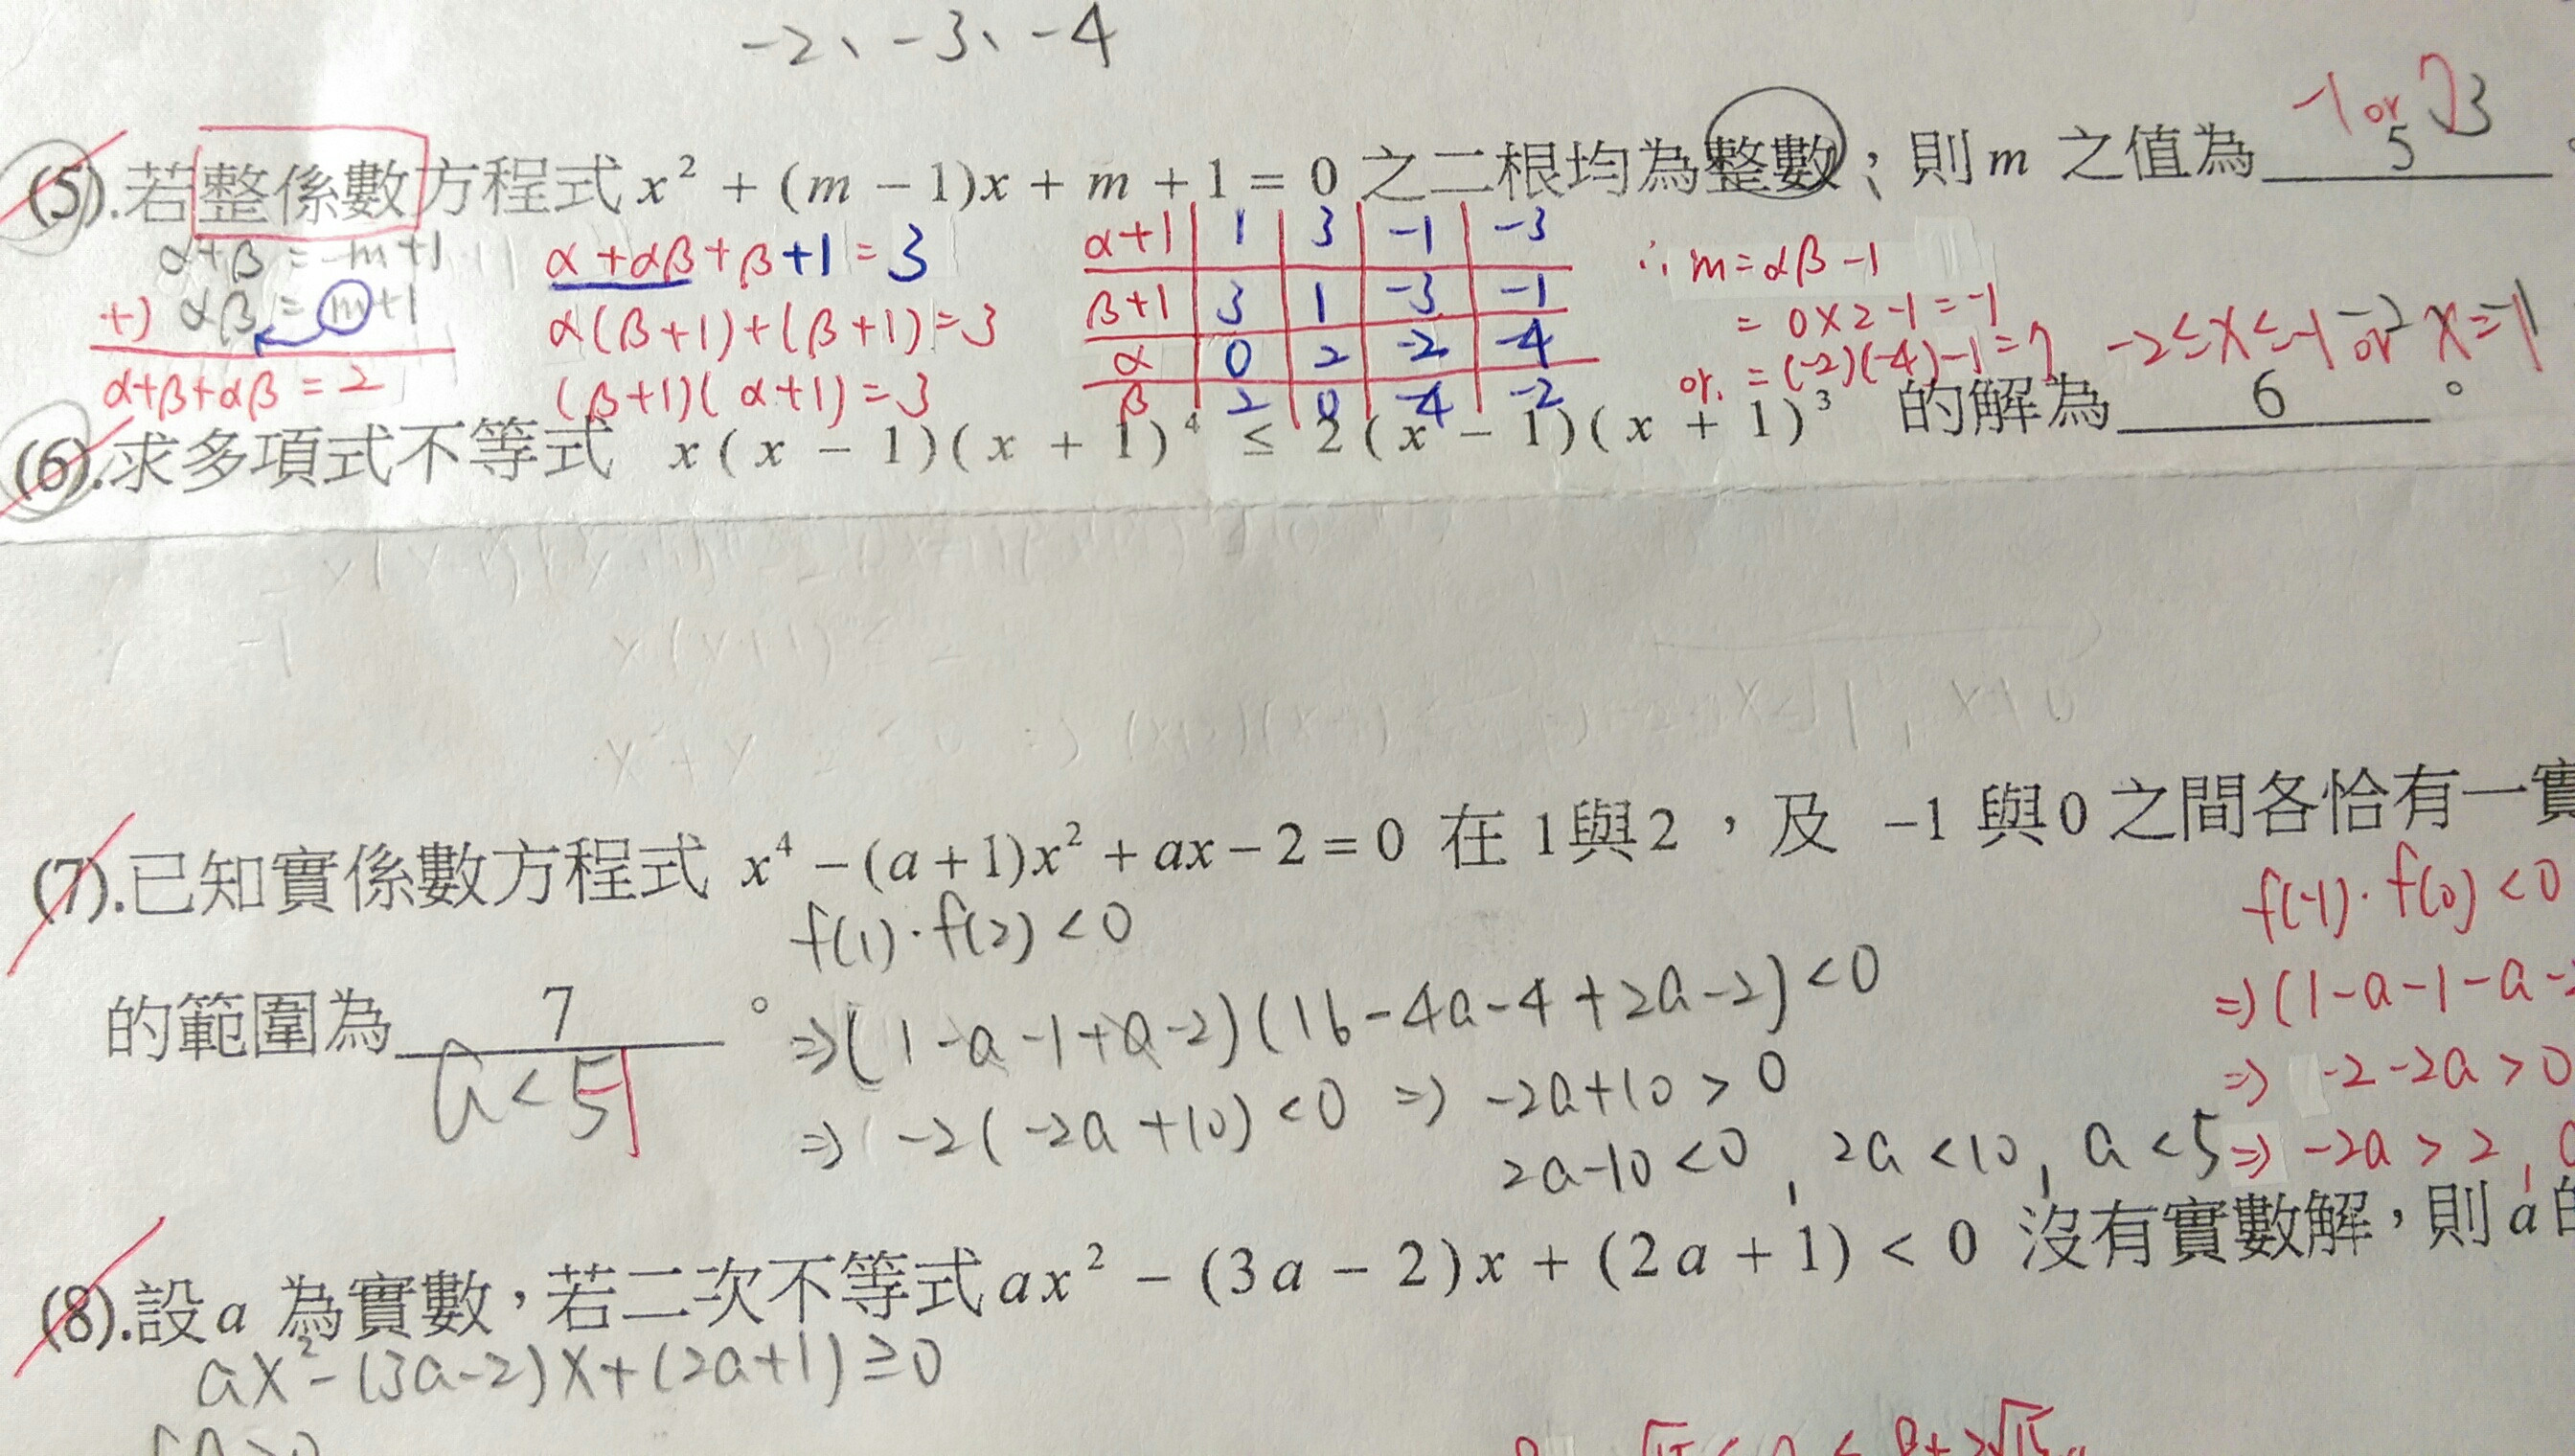 -2、-3、-4
-1 or 7 3
(5).若整係數方程式 x² + (m − 1)x + m + 1 = 0 之二根均為整數，則 m 之值為 5 。
α+β = -m+1
+) αβ = m+1
α+β+αβ = 2
α+αβ+β+1 = 3
α(β+1)+(β+1) = 3
(β+1)(α+1) = 3
α+1 | 1 | 3 | -1 | -3
β+1 | 3 | 1 | -3 | -1
α | 0 | 2 | -2 | -4
β | 2 | 0 | -4 | -2
∴ m = αβ-1
= 0×2-1 = -1
or. = (-2)(-4)-1 = 7
-2≤x≤-1 or x=1
(6).求多項式不等式 x(x − 1)(x + 1)⁴ ≤ 2(x − 1)(x + 1)³ 的解為 6 。
(7).已知實係數方程式 x⁴ − (a + 1)x² + ax − 2 = 0 在 1與2 ，及 −1 與0 之間各恰有一實
f(1)·f(2)<0
f(-1)·f(0)<0
的範圍為 7 。
a<5 -1
⇒(1-a-1+a-2)(16-4a-4+2a-2)<0
⇒(1-a-1-a-2
⇒ -2(-2a+10)<0 ⇒ -2a+10>0
⇒ -2-2a>0
2a-10<0, 2a<10, a<5
⇒ -2a>2,
(8).設a 為實數，若二次不等式 ax² − (3a − 2)x + (2a + 1) < 0 沒有實數解，則 a
ax²-(3a-2)x+(2a+1)≥0